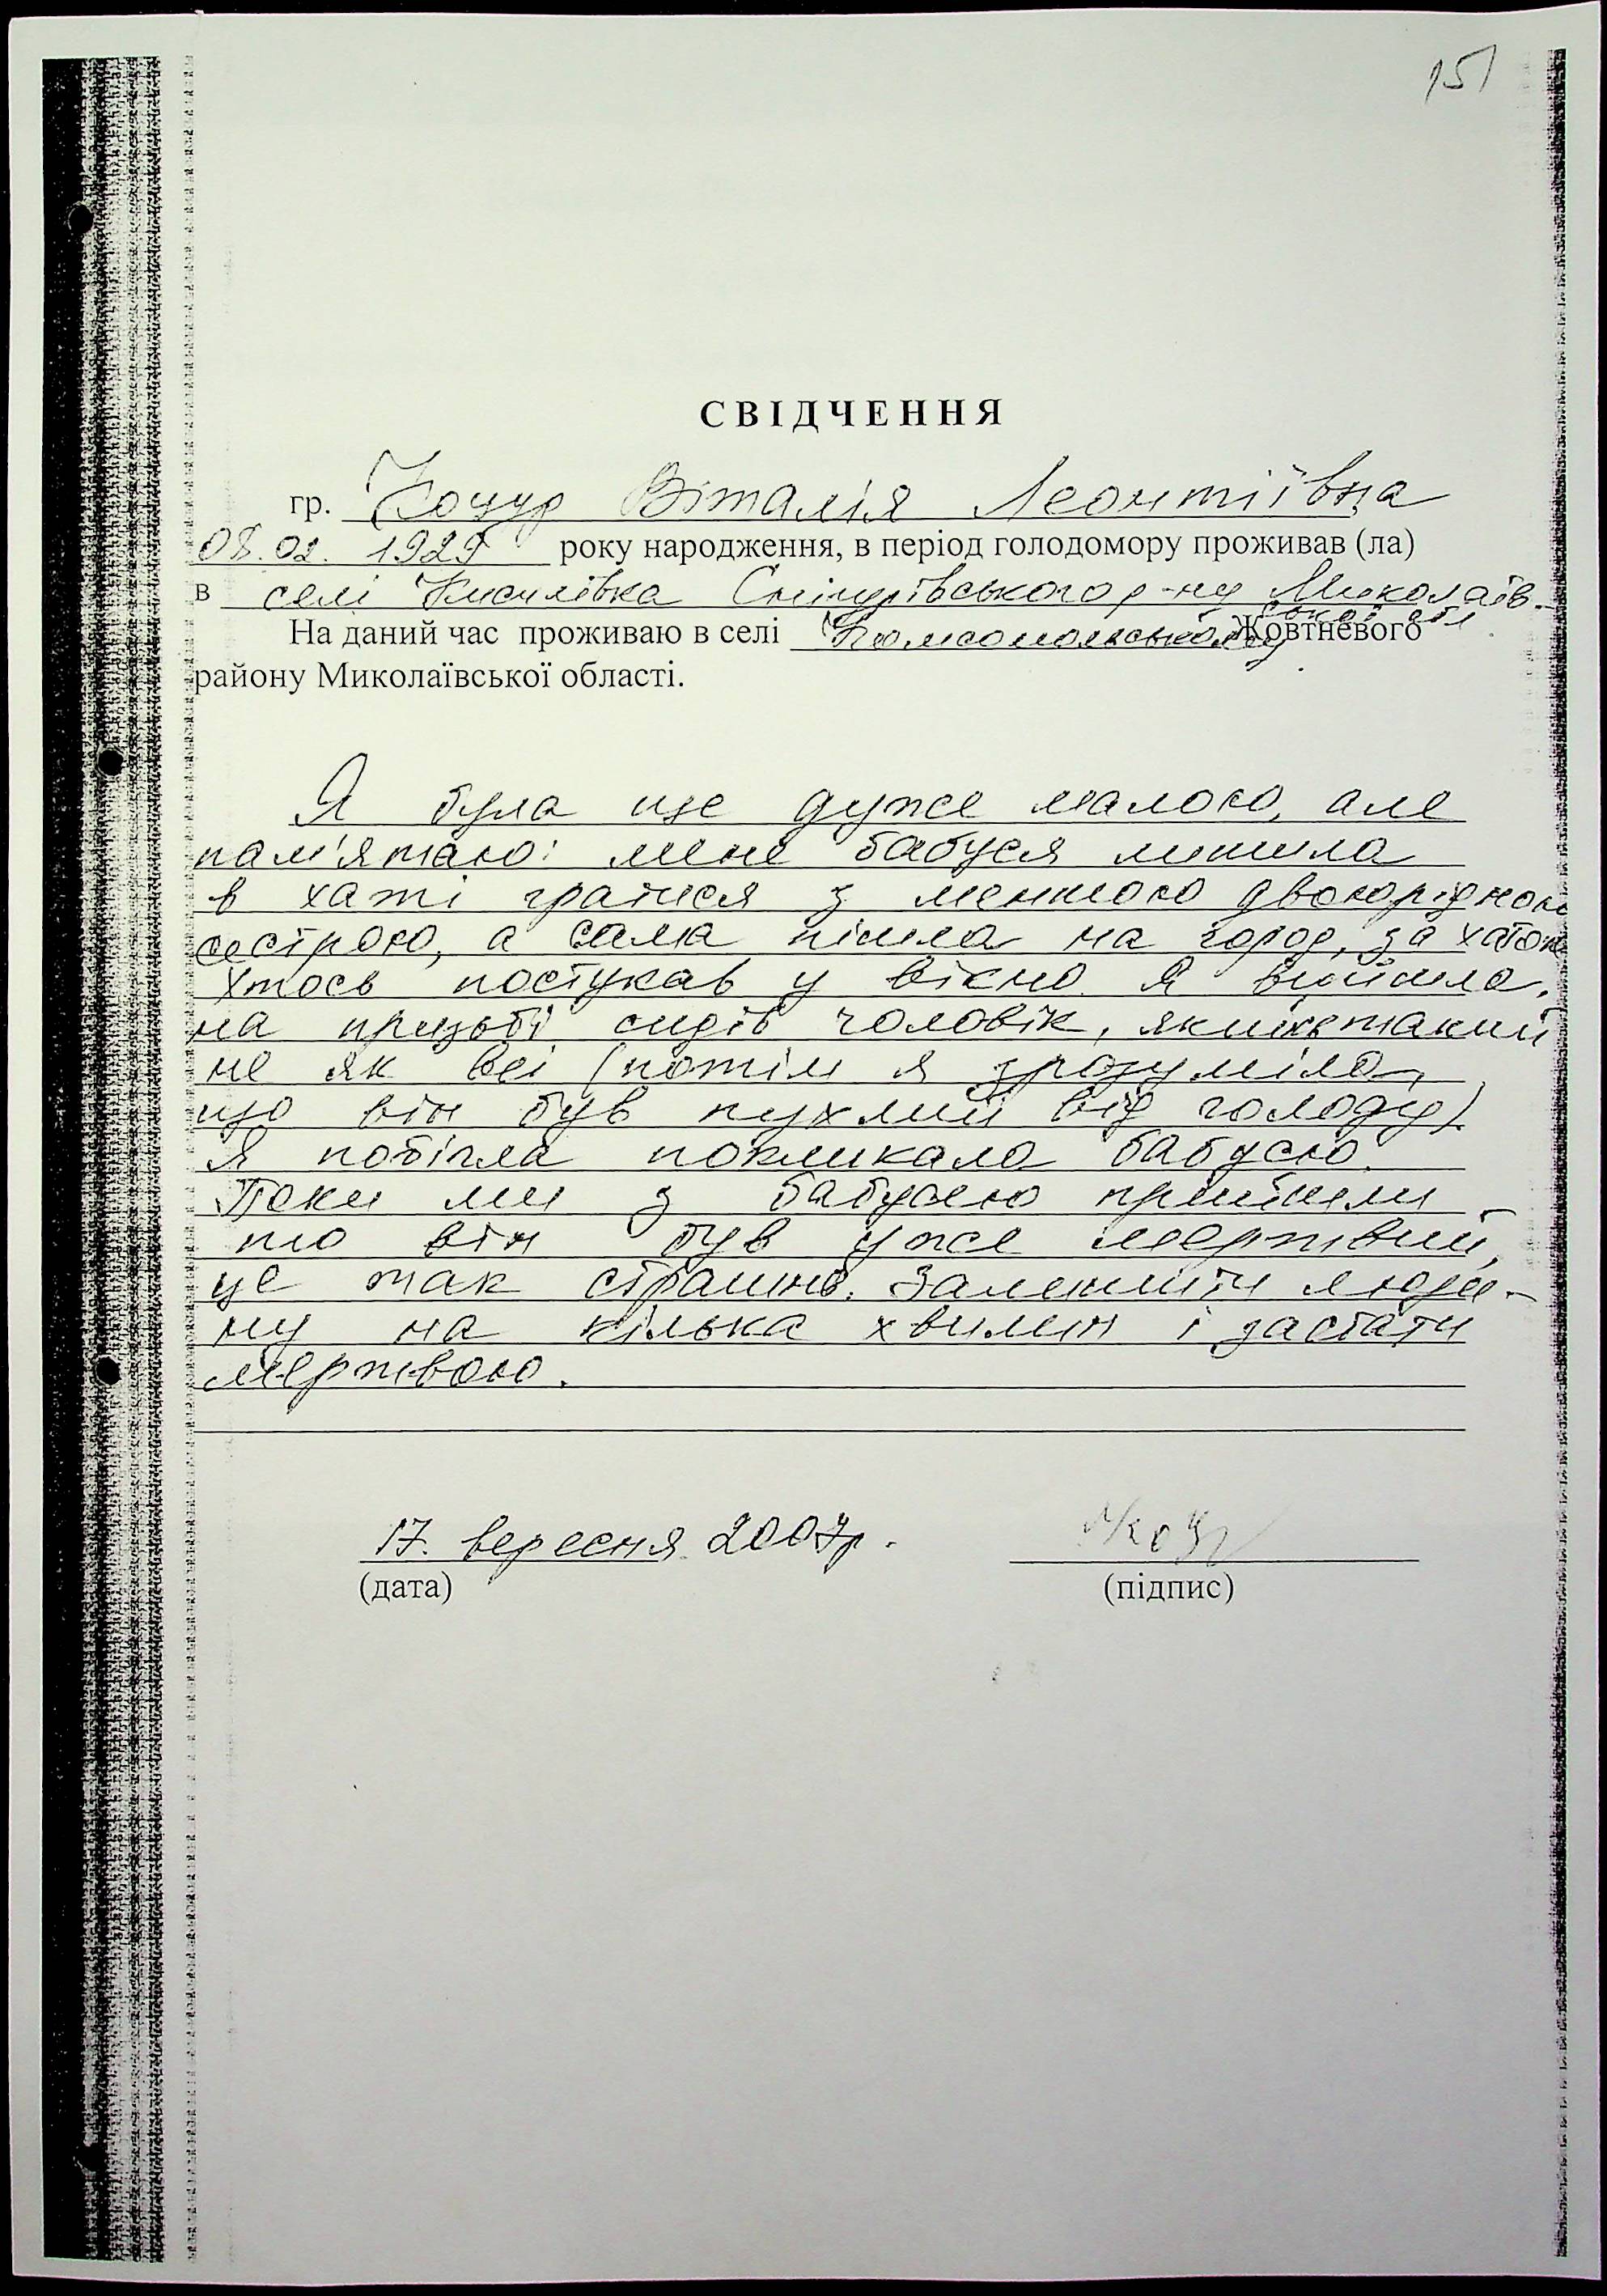 151
СВІДЧЕННЯ
гр. Коцур Віталія Леонтіївна
08.02.1929 року народження, в період голодомору проживав (ла)
в селі Кисилівка Снігурівського р-ну Миколаїв-
ської обл
На даний час проживаю в селі Комсомольському Жовтневого
району Миколаївської області.
Я була ще дуже малою, але
пам'ятаю: мене бабуся лишила
в хаті гратися з меншою двоюрідною
сестрою, а сама пішла на город, за хатою
Хтось постукав у вікно. Я вийшла,
на призьбі сидів чоловік, якийсь такий
не як всі (потім я зрозуміла,
що він був пухлий від голоду).
Я побігла покликала бабусю.
Поки ми з бабусею прийшли
то він був уже мертвий,
це так страшно. Залишити люди-
ну на кілька хвилин і застати
мертвою.
17. вересня 2007р.
(дата) (підпис)